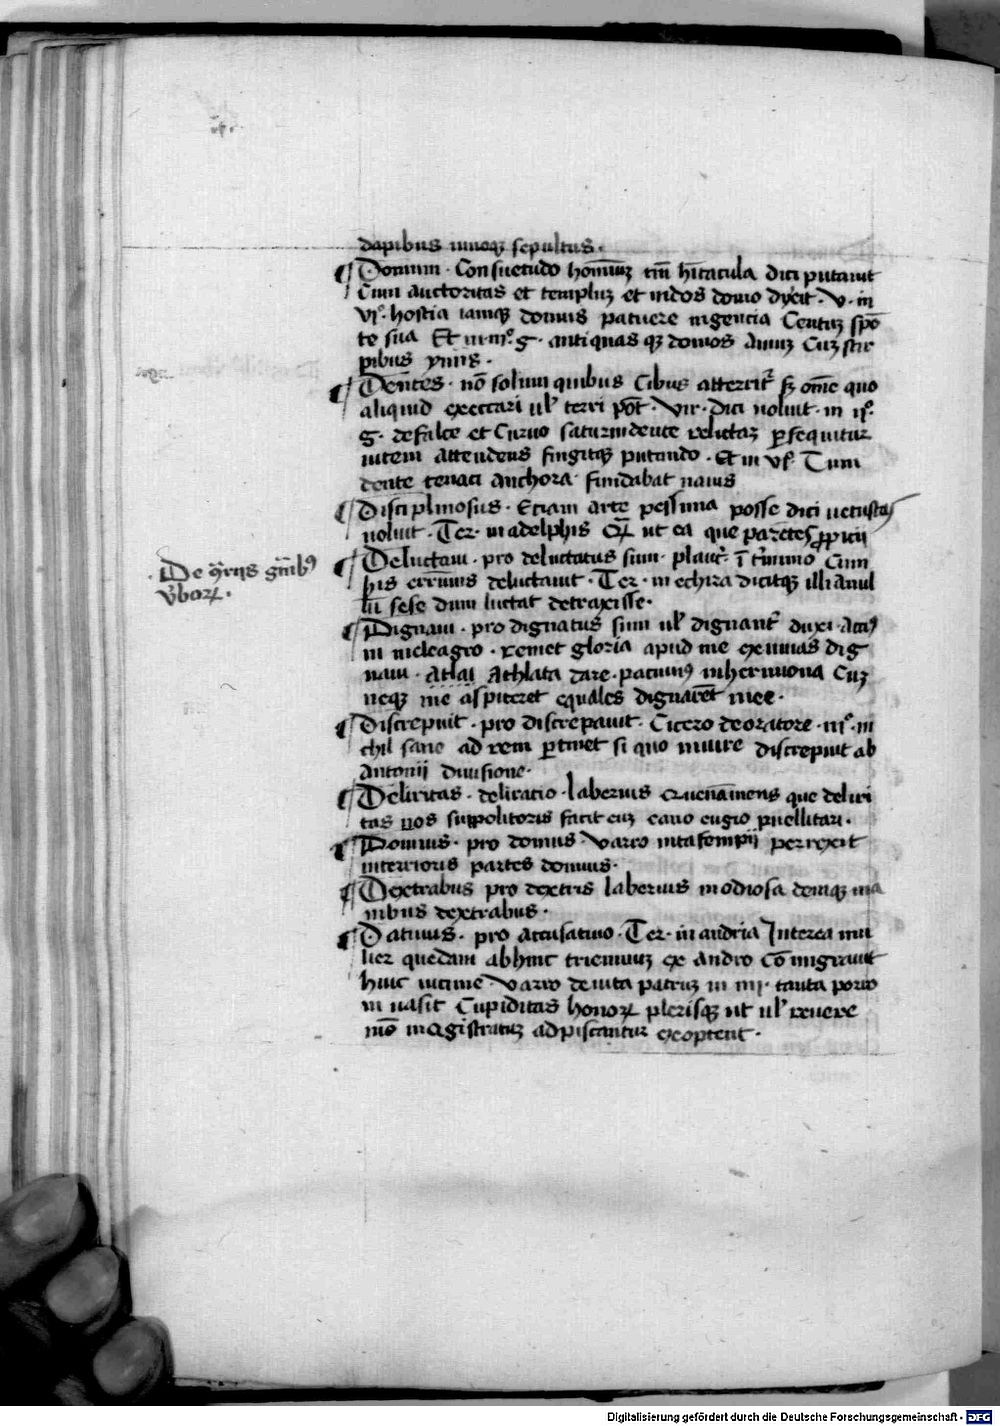 dapibus uinoqꝫ sepultus.
¶ Domum. Consuetudo hom̅um̅ tm̅ hītacula dici putauit
Cum auctoritas et templuꝫ et nidos domo dyc̄it. v. in
vi°. hostia iamqꝫ domus patuere ingencia Centuꝫ spō
te sua Et in iii°. g. antiquas qꝫ domos Auiuꝫ Cuꝫ stir
pibus ymis.
¶ Dentes. nō solum quibus Cibus atteritᷣ sꝫ om̄e quo
aliquid execcari ulˀ terri pōt. Vir. dici uoluit. in ii°.
g. de falce et Curuo saturni dente relictaꝫ ꝑsequitur
uitem attendens fingitqꝫ putando. Et in vi°. Tum
dente tenaci anchora fundabat nauis
¶ Disciplinosus. Etiam arte pessima posse dici uetustas
uoluit. Ter. in adelphis ut ea que parētes ꝓpicii
¶ Deluctaui. pro deluctatus sum. plautᷣ. ī Cum
his errumis deluctauit. Ter. in echira dicitqꝫ illi anul
lū sese dum luctat detraxisse.
· De ꝯrijs gn̅ibꝰ
v̄boꝝ.
¶ Dignaui. pro dignatus sum ulˀ dignantᷣ duxi. Acciꝰ
in meleagro. remet gloria apud me exuuias dig
naui. Atlai Athlata dare. pacuuiꝰ in hermiona Cuꝫ
neqꝫ me aspiceret equales dignarēt mee.
¶ Discrepuit. pro discrepauit. Cicero de oratore. iii°. ni
chil sane ad rem ꝑtinet si quo in iure discrepuit ab
Antonii diuisione.
¶ Deliritas. deliratio. laberius que deliri
tas uos suppolitoris facit euꝫ cauo eugio puellitari.
¶ Domus. pro domus. Varro perrexit
interioris partes domuis.
¶ Dextrabus pro dextris laberius modiosa deniqꝫ ma
nibus dextrabus.
¶ Datiuus. pro accusatiuo. Ter. in andria Interea mu
lier quedam abhinc trienniuꝫ ex Andro cōmigrauit
huic uicinie. Varro de uita patruꝫ in iiii. tanta porro
in uasit Cupiditas honoꝝ plerisqꝫ ut ulˀ ruere
mō magistratuꝫ adpiscantur exoptent.
Digitalisierung gefördert durch die Deutsche Forschungsgemeinschaft - DFG